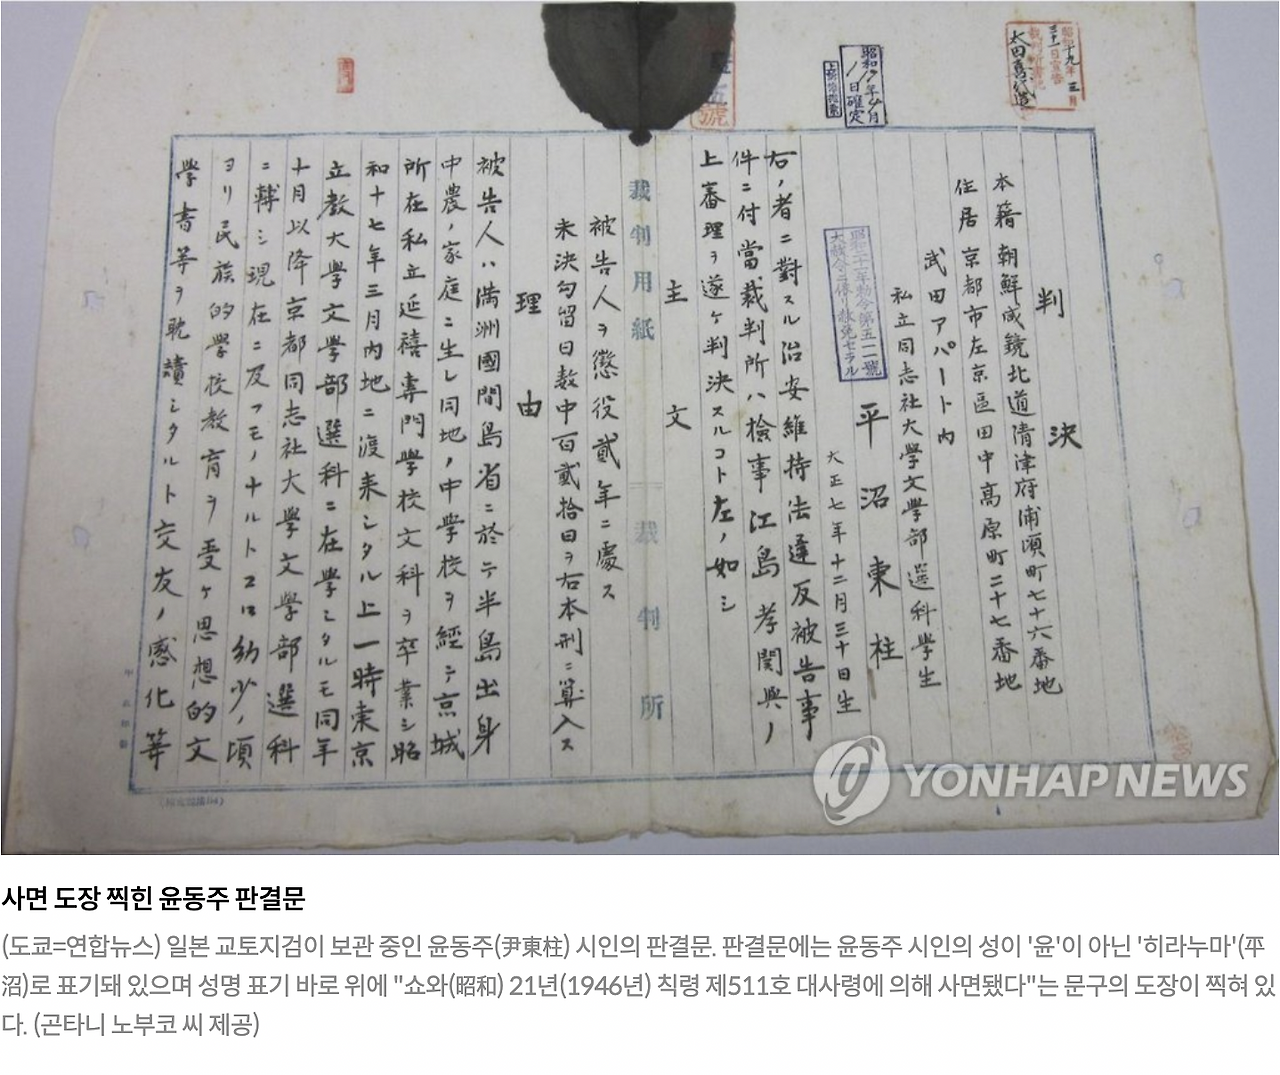 昭和十九年三月
三十一日宣告
裁判所書記
太田喜代造
昭和19年4月
1日確定
五
號
判決
本籍 朝鮮咸鏡北道清津府浦項町七十六番地
住居 京都市左京區田中高原町二十七番地
武田アパート内
私立同志社大學文學部選科學生
昭和二十一年勅令第五一一號
大赦令ニ依リ赦免セラル
平沼東柱
大正七年十二月三十日生
右ノ者ニ對スル治安維持法違反被告事
件ニ付當裁判所ハ檢事江島孝関與ノ
上審理ヲ遂ケ判決スルコト左ノ如シ
主文
裁判用紙
裁判所
被告人ヲ懲役貳年ニ處ス
未決勾留日数中百貳拾日ヲ右本刑ニ算入ス
理由
被告人ハ満洲國間島省ニ於テ半島出身
中農ノ家庭ニ生レ同地ノ中學校ヲ經テ京城
所在私立延禧專門學校文科ヲ卒業シ昭
和十七年三月内地ニ渡来シタル上一時東京
立教大學文學部選科ニ在學シタルモ同年
十月以降京都同志社大學文學部選科
ニ轉シ現在ニ及フモノナルトコロ幼少ノ頃
ヨリ民族的學校教育ヲ受ケ思想的文
學書等ヲ耽讀シタルト交友ノ感化等
YONHAP NEWS
사면 도장 찍힌 윤동주 판결문
(도쿄=연합뉴스) 일본 교토지검이 보관 중인 윤동주(尹東柱) 시인의 판결문. 판결문에는 윤동주 시인의 성이 '윤'이 아닌 '히라누마'(平
沼)로 표기돼 있으며 성명 표기 바로 위에 "쇼와(昭和) 21년(1946년) 칙령 제511호 대사령에 의해 사면됐다"는 문구의 도장이 찍혀 있
다. (곤타니 노부코 씨 제공)